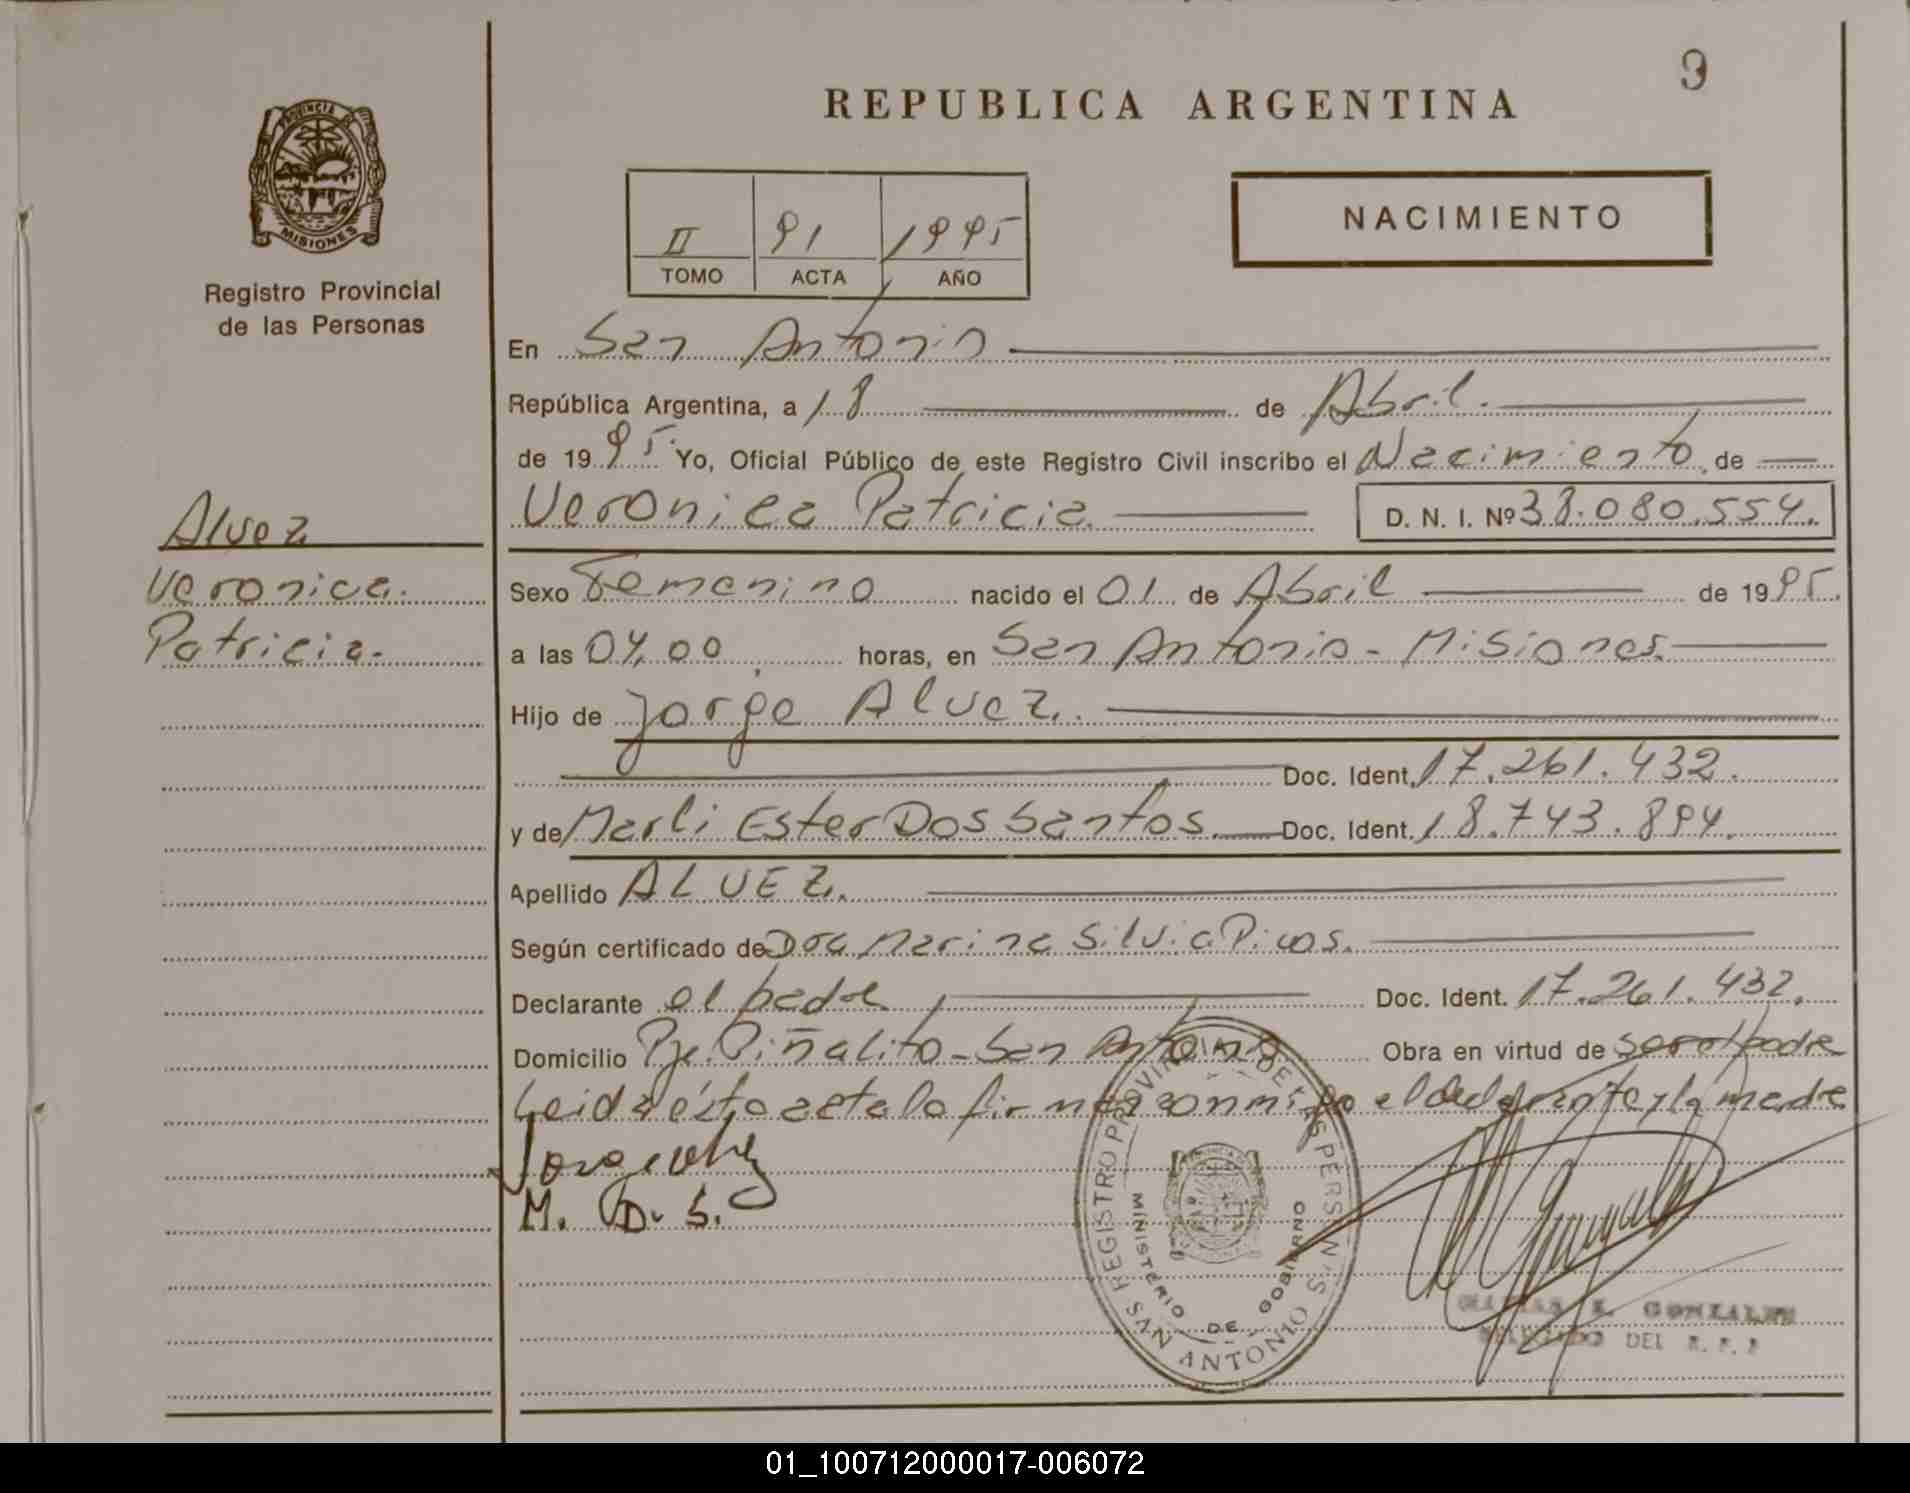 9
REPUBLICA ARGENTINA
PROVINCIA DE
MISIONES
Registro Provincial
de las Personas
II 91 1995
TOMO ACTA AÑO
NACIMIENTO
En San Antonio
República Argentina, a 18 de Abril.
de 1995 Yo, Oficial Público de este Registro Civil inscribo el Nacimiento de
Veronica Patricia D. N. I. Nº 38.080.554.
Alvez
Veronica.
Patricia.
Sexo Femenino nacido el 01 de Abril de 1995.
a las 04,00 horas, en San Antonio - Misiones.
Hijo de Jorge Alvez.
Doc. Ident. 17.261.432.
y de Marli Ester Dos Santos. Doc. Ident. 18.743.894.
Apellido ALVEZ.
Según certificado de Dra Marina Silvia
Declarante el padre Doc. Ident. 17.261.432.
Domicilio Pje. Piñalito - San Antonio Obra en virtud de ser el padre
Leida ésta acta la firman conmigo el declarante y la madre
M. D. S.
REGISTRO PROVINCIAL DE LAS PERSONAS
MINISTERIO DE GOBIERNO
SAN ANTONIO
GONZALEZ
DEL
01_100712000017-006072